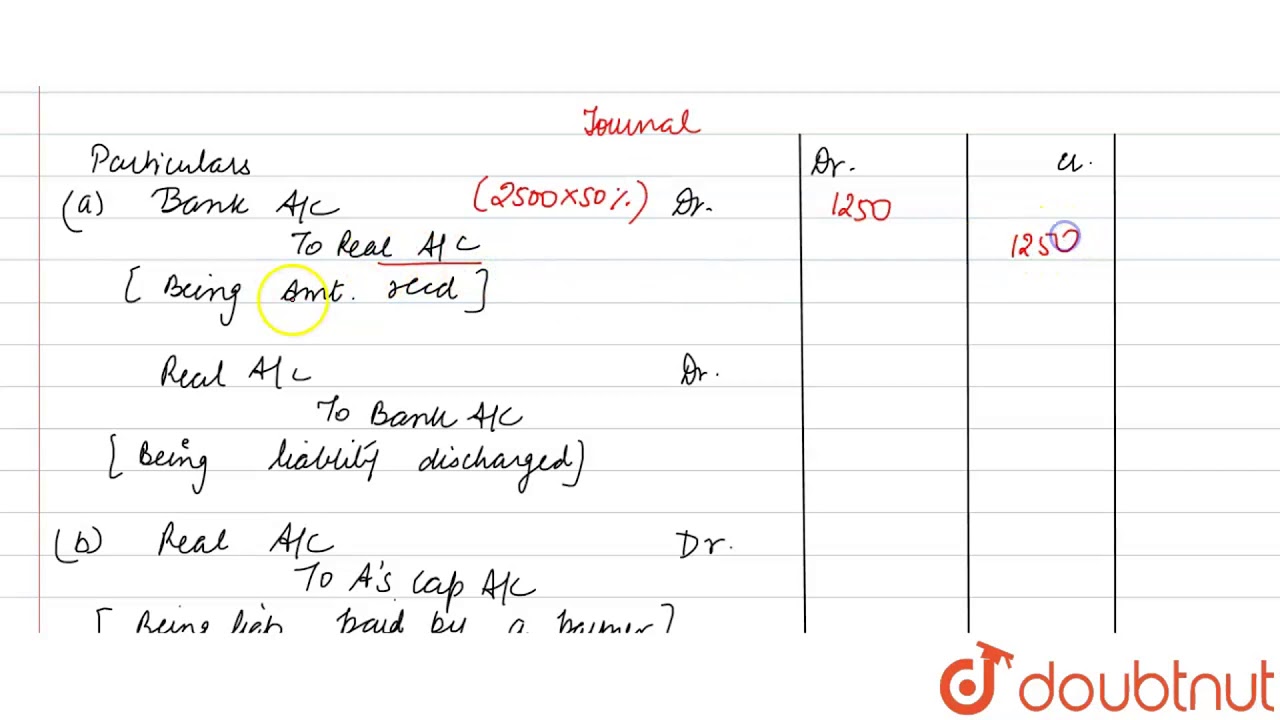 Journal
Particulars Dr. Cr.
(a) Bank A/c (2500×50%) Dr. 1250
To Real A/c 1250
[Being Amt. recd]
Real A/c Dr.
To Bank A/c
[Being liablity discharged]
(b) Real A/c Dr.
To A's cap A/c
[Being liab. paid by a partner]
doubtnut